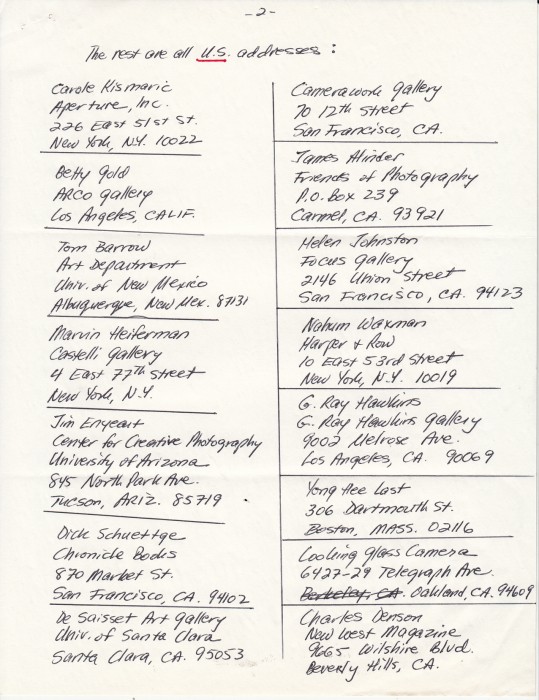 -2-
The rest are all U.S. addresses:
Carole Kismaric
Aperture, Inc.
226 East 51st St.
New York, N.Y. 10022
Betty Gold
ARCO gallery
Los Angeles, CALIF.
Tom Barrow
Art Department
Univ. of New Mexico
Albuquerque, New Mex. 87131
Marvin Heiferman
Castelli Gallery
4 East 77th Street
New York, N.Y.
Jim Enyeart
Center for Creative Photography
University of Arizona
845 North Park Ave.
Tucson, ARIZ. 85719
Dick Schuettge
Chronicle Books
870 Market St.
San Francisco, CA. 94102
De Saisset Art Gallery
Univ. of Santa Clara
Santa Clara, CA. 95053
Camerawork Gallery
70 12th Street
San Francisco, CA.
James Alinder
Friends of Photography
P.O. Box 239
Carmel, CA. 93921
Helen Johnston
Focus Gallery
2146 Union Street
San Francisco, CA. 94123
Nahum Waxman
Harper + Row
10 East 53rd Street
New York, N.Y. 10019
G. Ray Hawkins
G. Ray Hawkins Gallery
9002 Melrose Ave.
Los Angeles, CA. 90069
Yong Hee Last
306 Dartmouth St.
Boston, MASS. 02116
Looking Glass Camera
6427-29 Telegraph Ave.
Berkeley, CA Oakland, CA. 94609
Charles Denson
New West Magazine
9665 Wilshire Blvd.
Beverly Hills, CA.